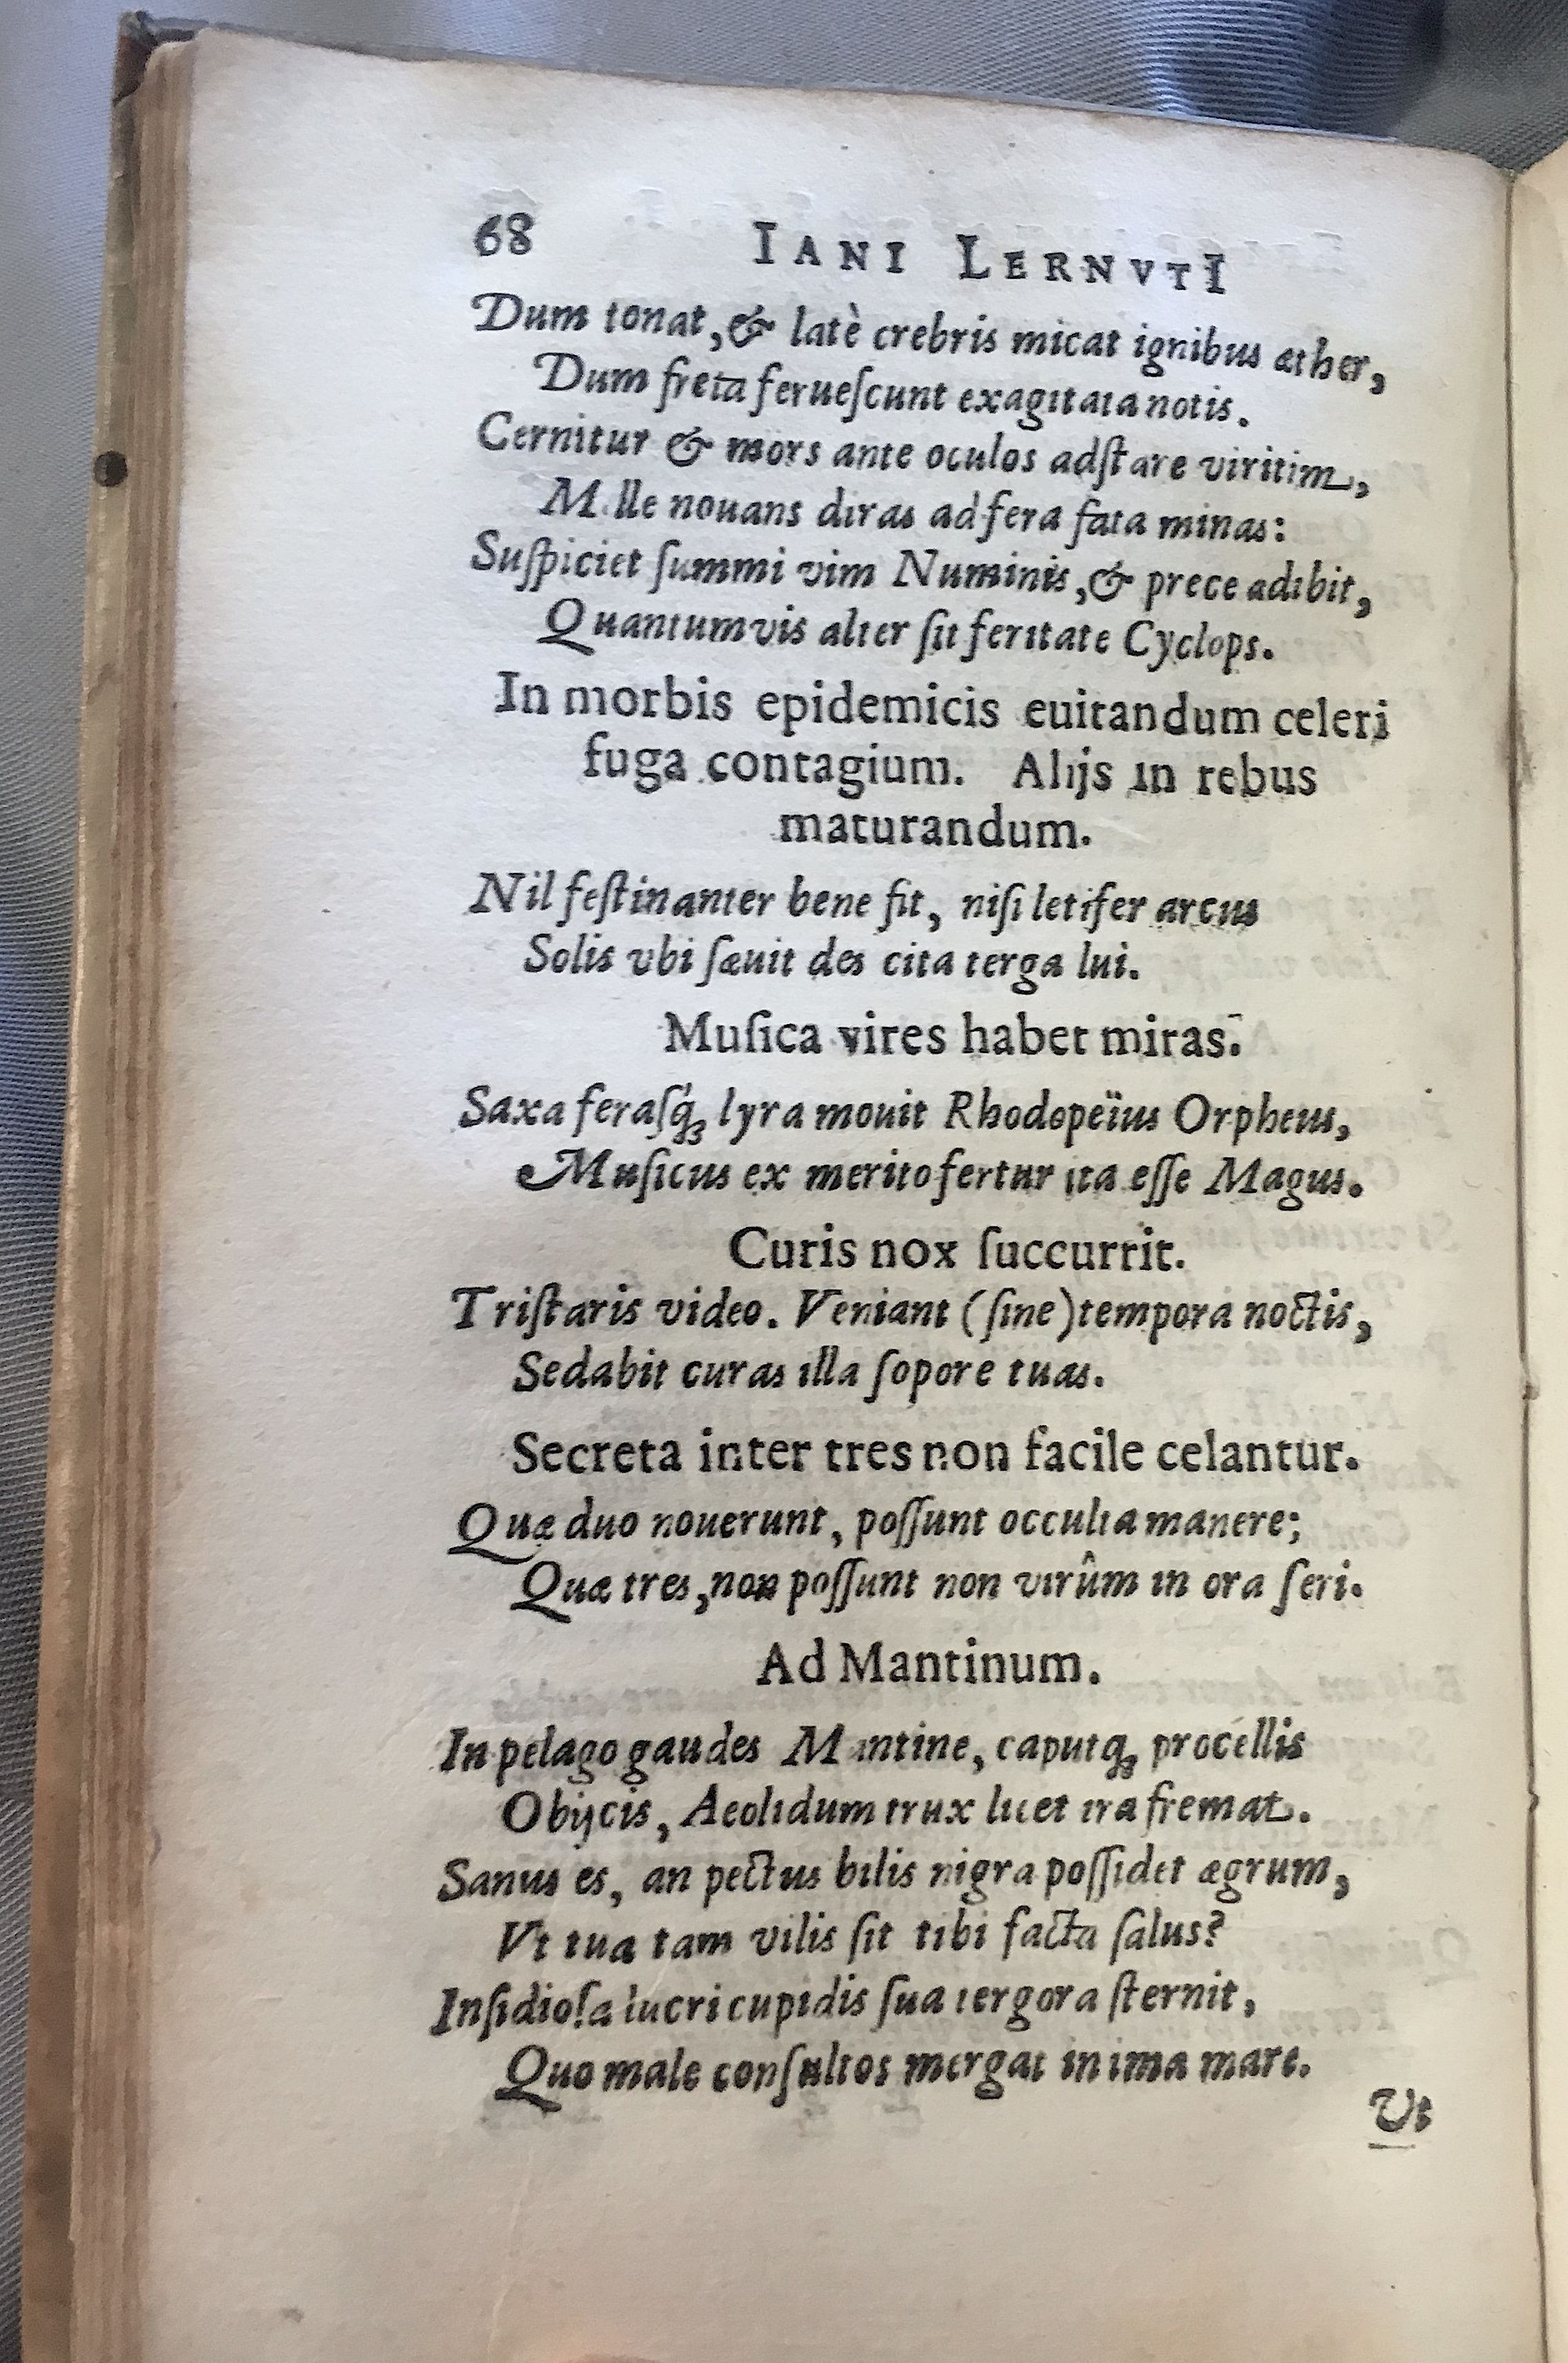 68 IANI LERNVTI
Dum tonat, & latè crebris micat ignibus æther,
Dum freta ferueſcunt exagitata notis.
Cernitur & mors ante oculos adſtare viritim,
M lle nouans diras ad fera fata minas:
Suſpiciet ſummi vim Numinis, & prece adibit,
Quantumvis alter ſit feritate Cyclops.
In morbis epidemicis euitandum celeri
fuga contagium. Alijs in rebus
maturandum.
Nil feſtinanter bene fit, niſi letifer arcus
Solis vbi ſæuit des cita terga lui.
Muſica vires habet miras.
Saxa feraſq́ꝫ lyra mouit Rhodopeïus Orpheus,
Muſicus ex merito fertur ita eſſe Magus.
Curis nox ſuccurrit.
Triſtaris video. Veniant (ſine) tempora noctis,
Sedabit curas illa ſopore tuas.
Secreta inter tres non facile celantur.
Quæ duo nouerunt, poſſunt occulta manere;
Quæ tres, non poſſunt non virûm in ora ſeri.
Ad Mantinum.
In pelago gaudes M ntine, caputqꝫ procellis
Obijcis, Aeolidum trux licet ira fremat.
Sanus es, an pectus bilis nigra poſſidet ægrum,
Vt tua tam vilis ſit tibi facta ſalus?
Inſidioſa lucri cupidis ſua tergora ſternit,
Quo male conſultos mergat in ima mare.
Vt